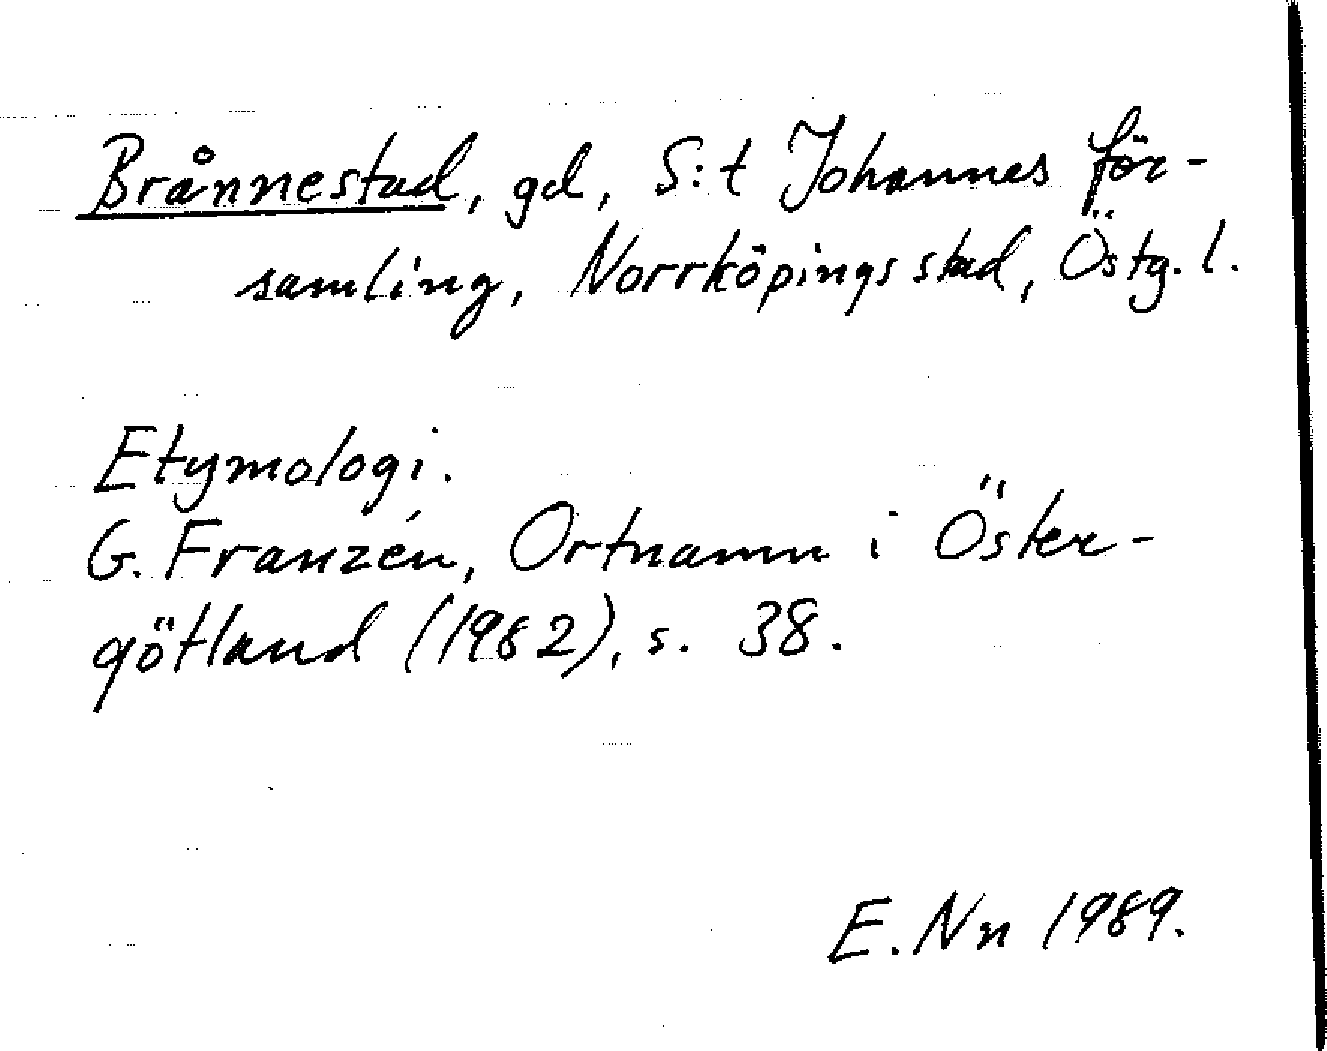 Brånnestad, gd, S:t Johannes för-
samling, Norrköpings stad, Östg. l.
Etymologi.
G. Franzén, Ortnamn i Öster-
götland (1982), s. 38.
E. Nn 1989.